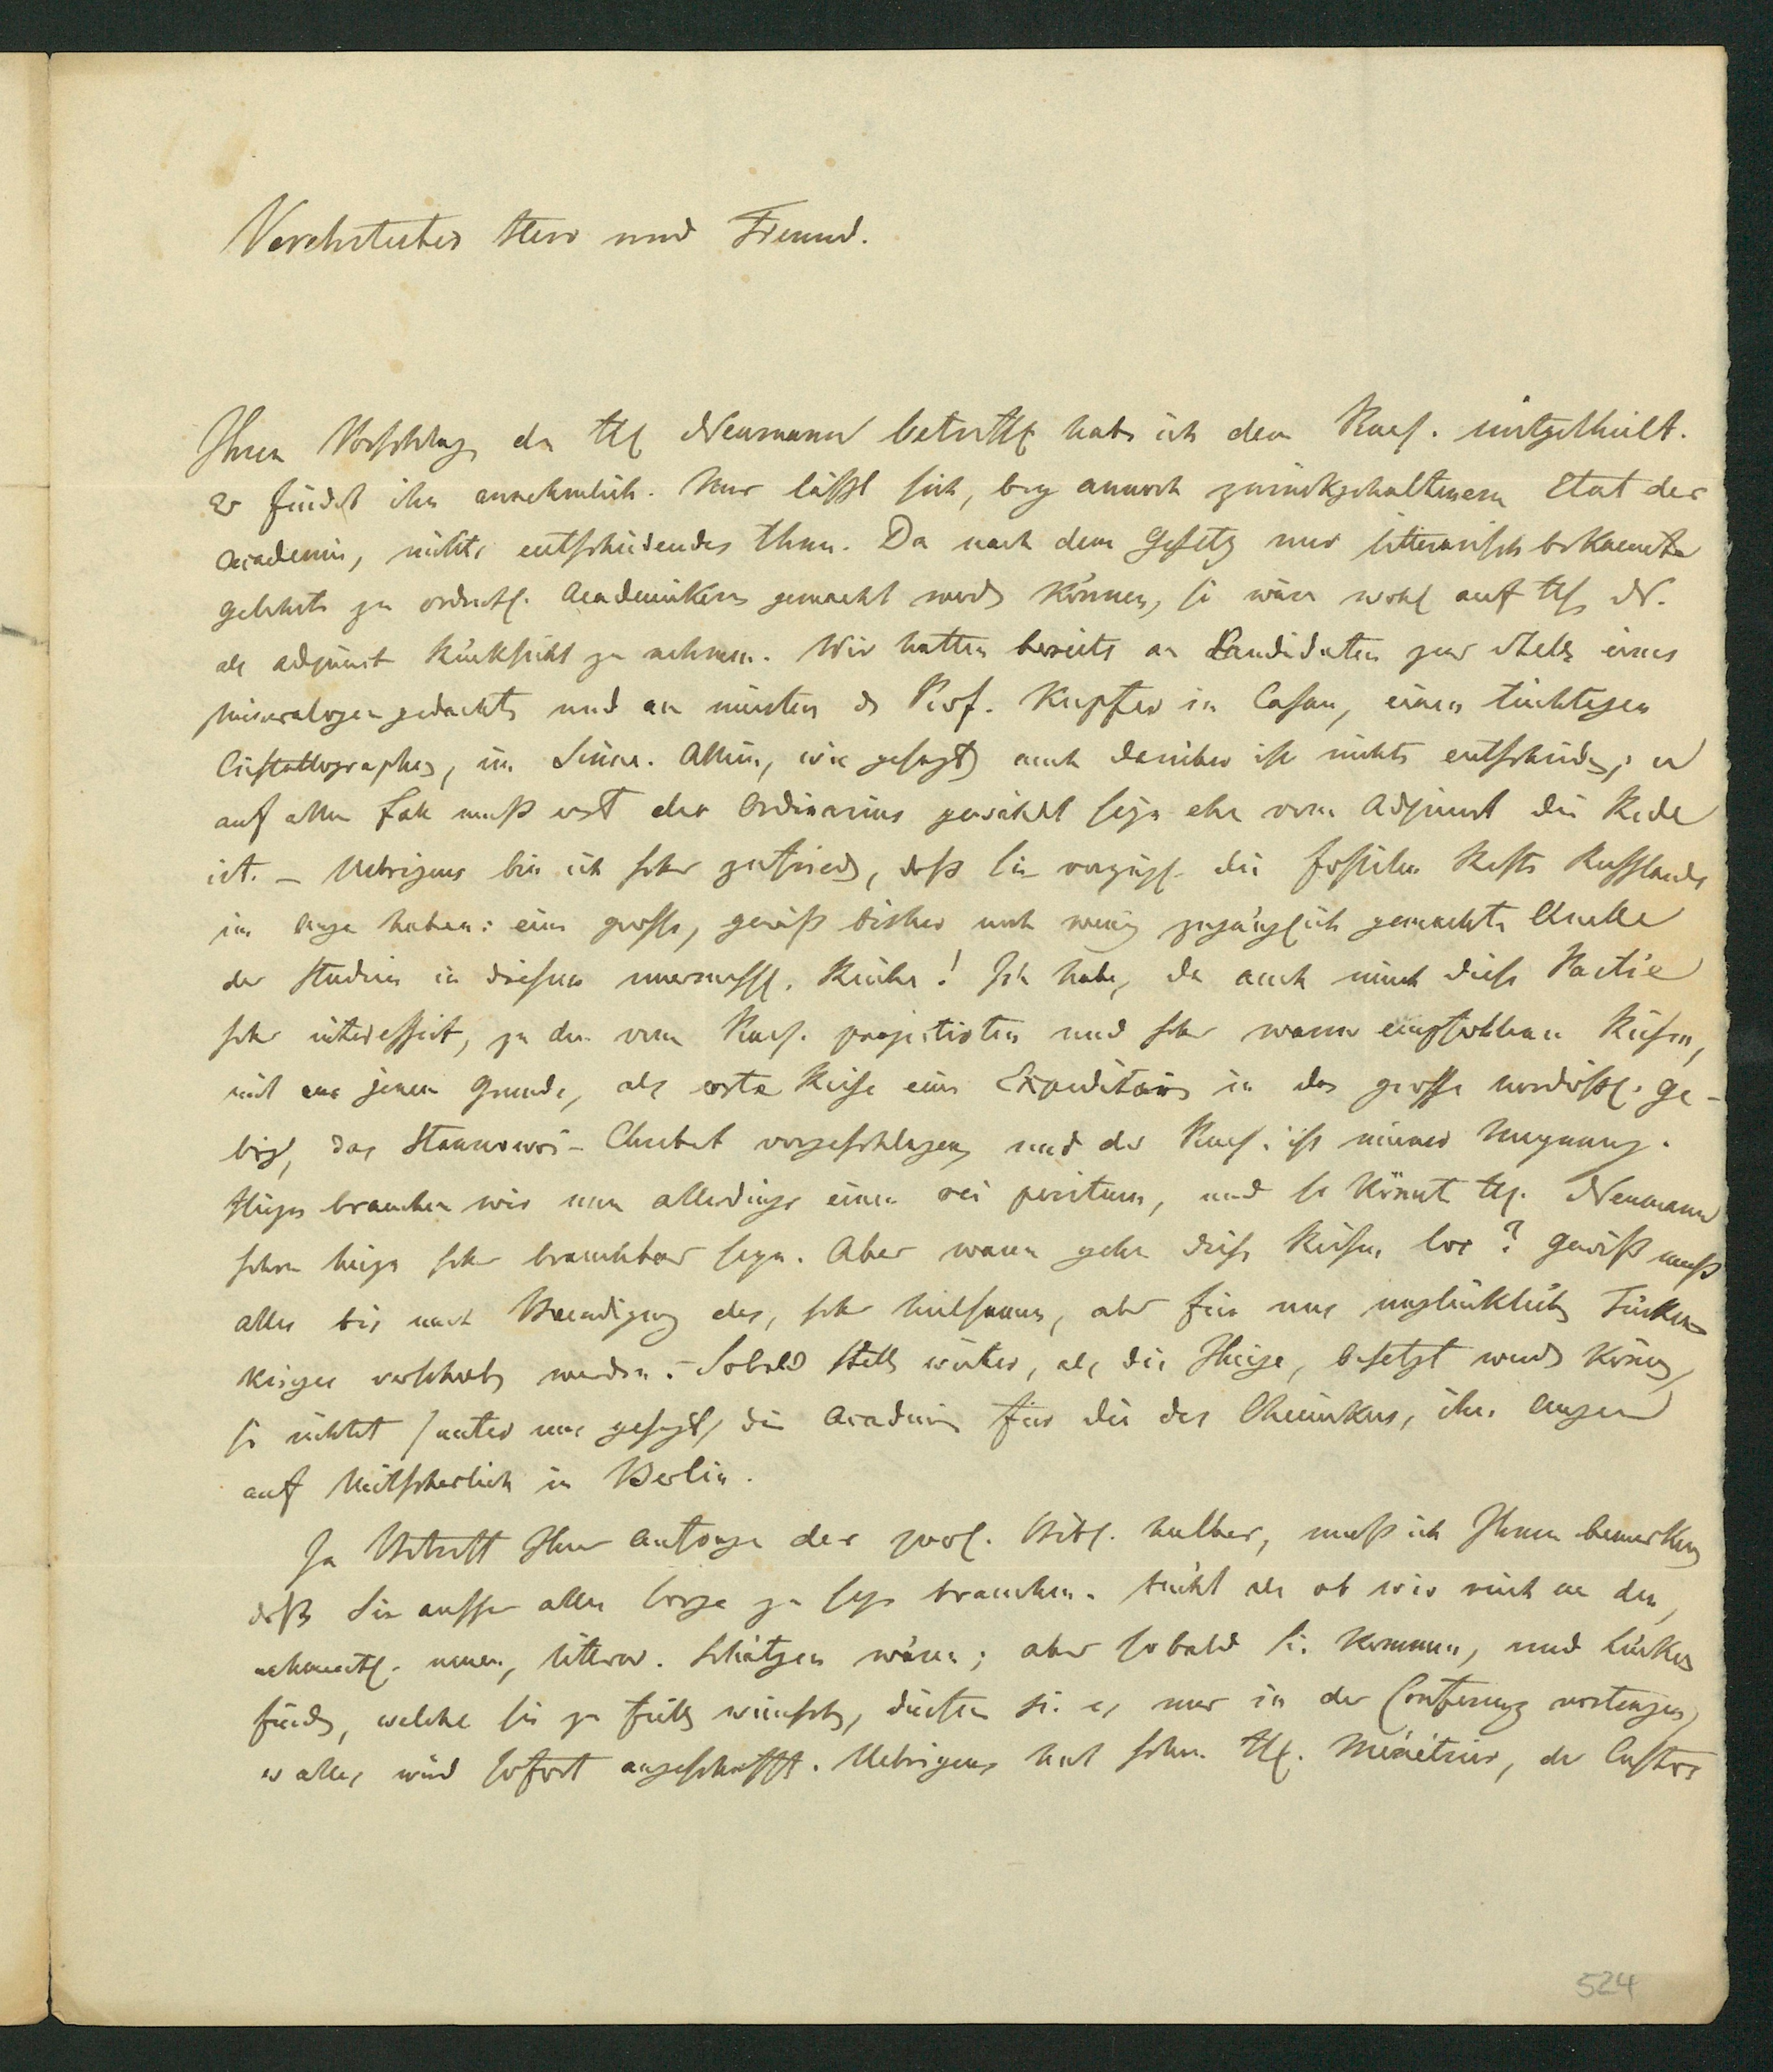 Verehrtester Herr und Freund.
Ihren Vorschlag den H. Neumann betreff. habe ich dem Praes. mitgetheilt.
Er findet ihn annehmlich. Nur läßt sich, bey annoch zurückgehaltenem Etat der
Academie, nichts entscheidendes thun. Da nach dem Gesetz nur litterarisch bekannte
Gelehrte zu ordentl. Academikern gemacht werden können, so wäre wohl auf H. N.
als Adjunct Rücksicht zu nehmen. Wir hatten bereits an Candidaten zur Stelle eines
Mineralogen gedacht, und am meisten d. Prof. Kupffer in Casan, einen tüchtigen
Cristallographen, im Sinne. Allein, wie gesagt, auch darüber ist nichts entschieden; u
auf allen Fall muß erst der Ordinarius gewählt seyn ehe vom Adjunct die Rede
ist. – Uebrigens bin ich sehr zufrieden, daß Sie vorzügl. die fossilen Reste Russlands
im Auge haben: eine grosse, gewiß bisher noch wenig zugänglich gemachte Quelle
der Studien in diesem unermessl. Reiche! Ich habe, da auch mich diese Partie
sehr interessirt, zu den vom Praes. projectirten und sehr warm empfohlenen Reisen,
mit aus jenem Grunde, als erste Reise eine Expedition in das grosse nordöstl. Ge-
birg, das Stannowoi-Chrebet vorgeschlagen, und der Praes. ist meiner Meynung.
Hiezu brauchen wir nun allerdings einen rei peritum, und so könnte H. Neumann
schon hiezu sehr brauchbar seyn. Aber wann gehen diese Reisen los? Gewiß muß
alles bis nach Beendigung des, sehr heilsamen, aber für uns unglücklichen Türken-
krieges verschoben werden. – Sobald Stellen weiter, als die Ihrige, besetzt werden können,
so richtet /unter uns gesagt/ die Academie für die des Chemikers, ihre Augen
auf Mitscherlich in Berlin.
In Betreff Ihrer Anfrage der zool. Bibl. halber, muß ich Ihnen bemerken
daß Sie ausser aller Sorge zu seyn brauchen. Nicht als ob wir reich an den,
nahmentl. neuen, litterar. Schätzen wären; aber sobald Sie kommen, und Lücken
finden, welche Sie zu füllen wünschen, dürfen Sie es nur in der Conferenz vortragen,
u alles wird sofort angeschafft. Uebrigens hat schon H. Ménétries, der Custos
524